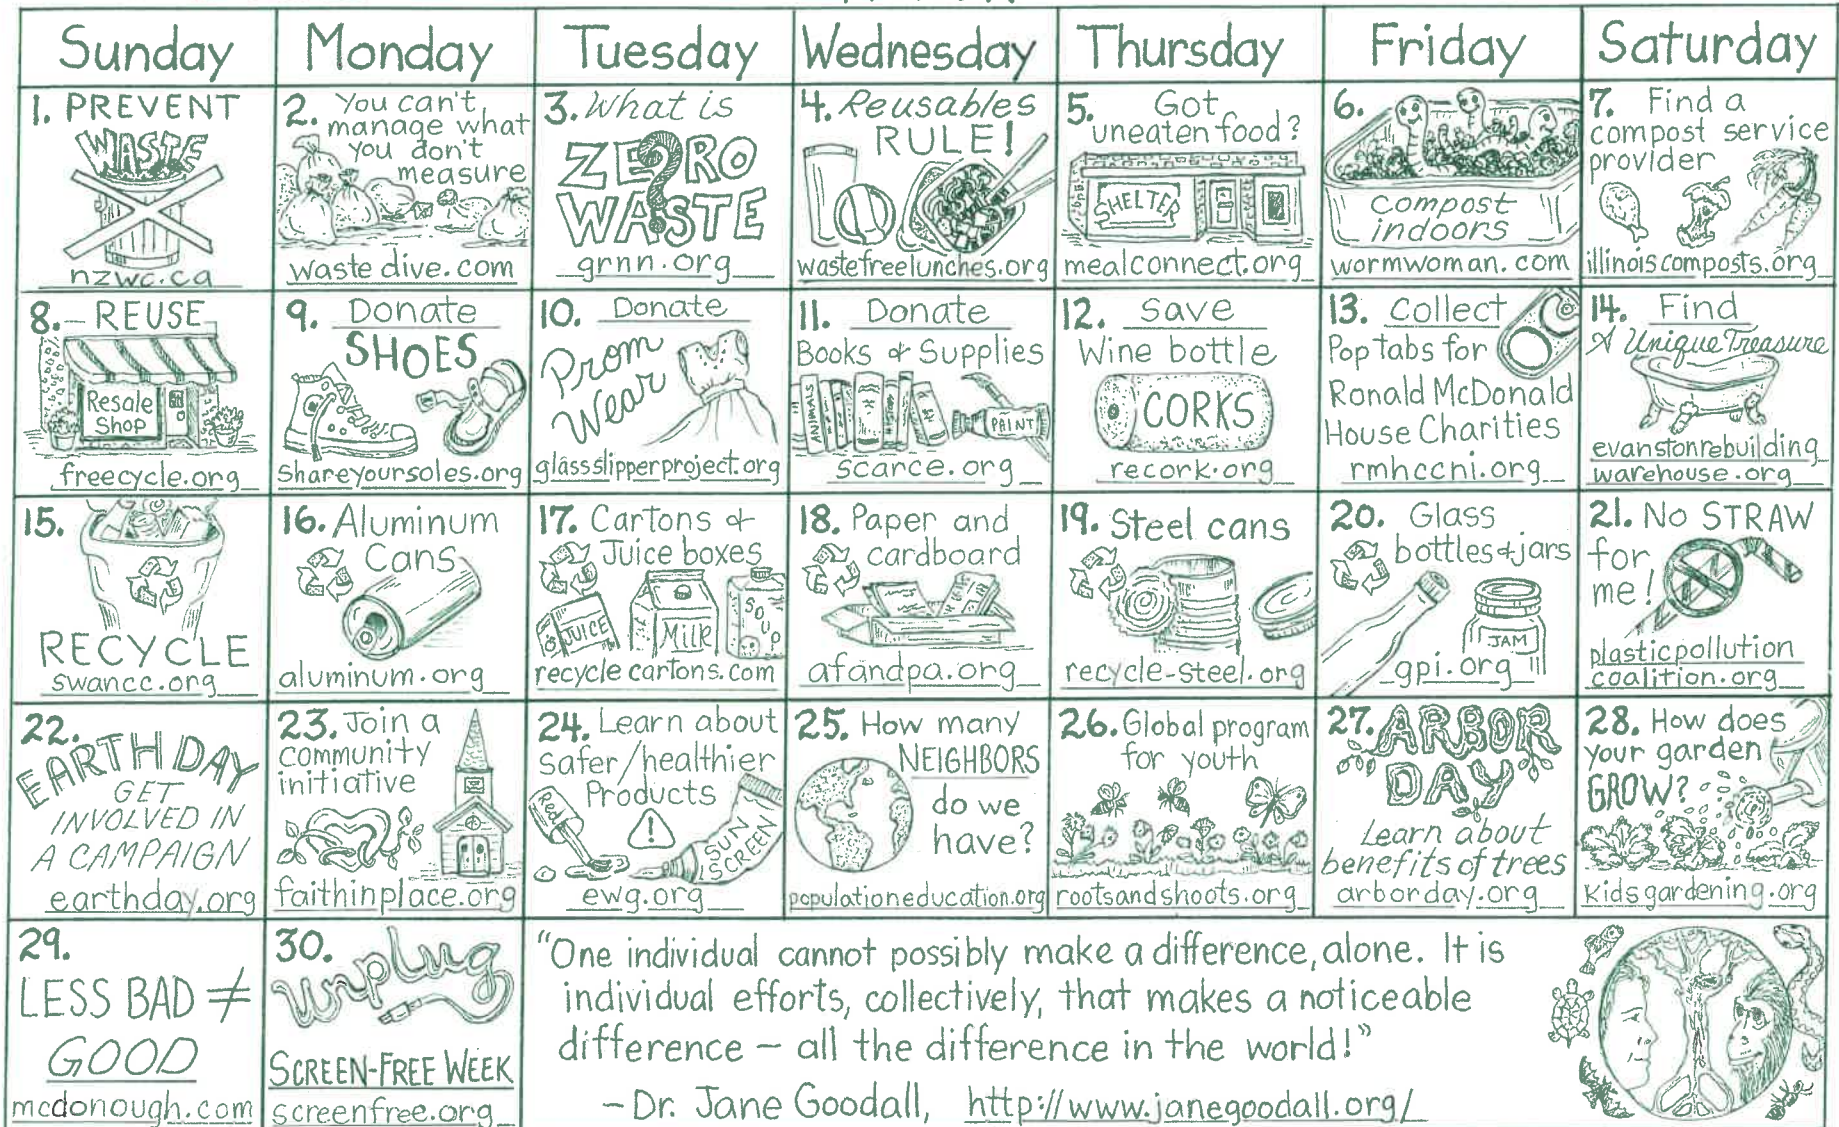 Sunday
Monday
Tuesday
Wednesday
Thursday
Friday
Saturday
1. PREVENT
WASTE
nzwc.ca
2. You can't
manage what
you don't
measure
wastedive.com
3. What is
ZERO
WASTE
?
grnn.org
4. Reusables
RULE!
wastefreelunches.org
5. Got
uneaten food?
SHELTER
mealconnect.org
6.
compost
indoors
wormwoman.com
7. Find a
compost service
provider
illinoiscomposts.org
8. REUSE
Resale
Shop
freecycle.org
9. Donate
SHOES
shareyoursoles.org
10. Donate
Prom
Wear
glassslipperproject.org
11. Donate
Books & Supplies
ANIMALS
PAINT
scarce.org
12. Save
Wine bottle
CORKS
recork.org
13. Collect
Pop tabs for
Ronald McDonald
House Charities
rmhccni.org
14. Find
A Unique Treasure
evanstonrebuilding
warehouse.org
15.
RECYCLE
swancc.org
16. Aluminum
Cans
aluminum.org
17. Cartons &
Juice boxes
JUICE
Milk
SOUP
recyclecartons.com
18. Paper and
cardboard
afandpa.org
19. Steel cans
recycle-steel.org
20. Glass
bottles & jars
JAM
gpi.org
21. No STRAW
for
me!
plasticpollution
coalition.org
22.
EARTH DAY
GET
INVOLVED IN
A CAMPAIGN
earthday.org
23. Join a
community
initiative
faithinplace.org
24. Learn about
safer/healthier
Products
Red
!
SUN
SCREEN
ewg.org
25. How many
NEIGHBORS
do we
have?
populationeducation.org
26. Global program
for youth
rootsandshoots.org
27. ARBOR
DAY
Learn about
benefits of trees
arborday.org
28. How does
your garden
GROW?
kidsgardening.org
29.
LESS BAD ≠
GOOD
mcdonough.com
30.
Unplug
SCREEN-FREE WEEK
screenfree.org
"One individual cannot possibly make a difference, alone. It is
individual efforts, collectively, that makes a noticeable
difference – all the difference in the world!"
– Dr. Jane Goodall, http://www.janegoodall.org/